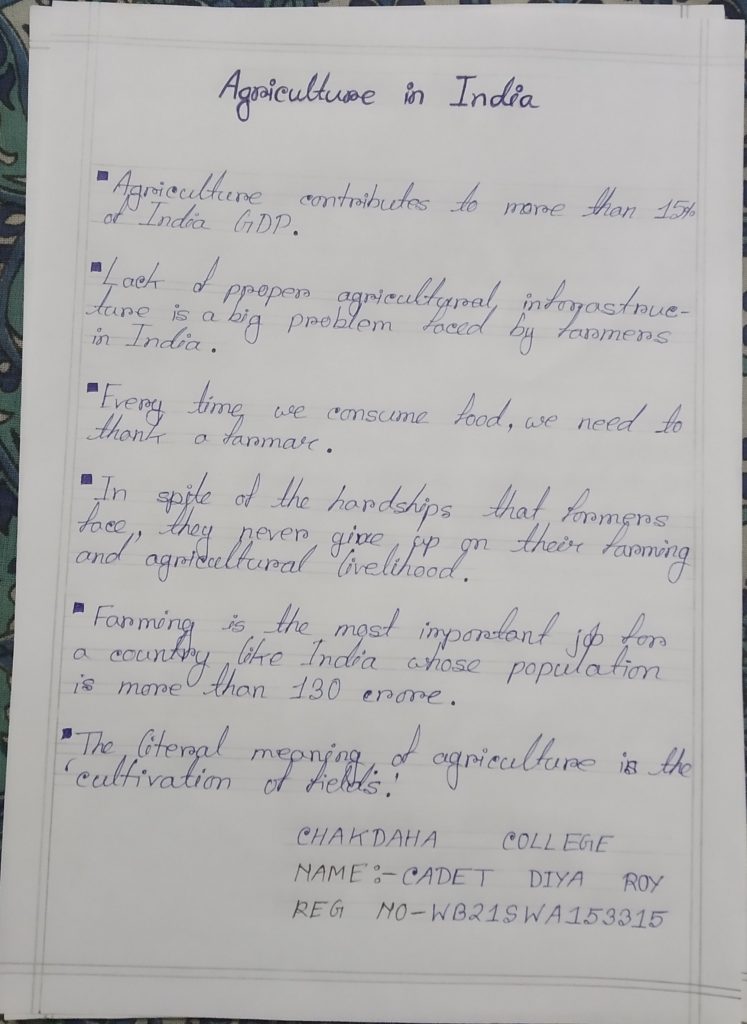 Agriculture in India
▪Agriculture contributes to more than 15%
of India GDP.
▪Lack of proper agricultural infrastruc-
ture is a big problem faced by farmers
in India.
▪Every time we consume food, we need to
thank a farmar.
▪In spite of the hardships that formers
face, they never give up on their farming
and agricultural livelihood.
▪Farming is the most important job for
a country like India whose population
is more than 130 crore.
▪The literal meaning of agriculture is the
'cultivation of fields.'
CHAKDAHA COLLEGE
NAME:-CADET DIYA ROY
REG NO-WB21SWA153315